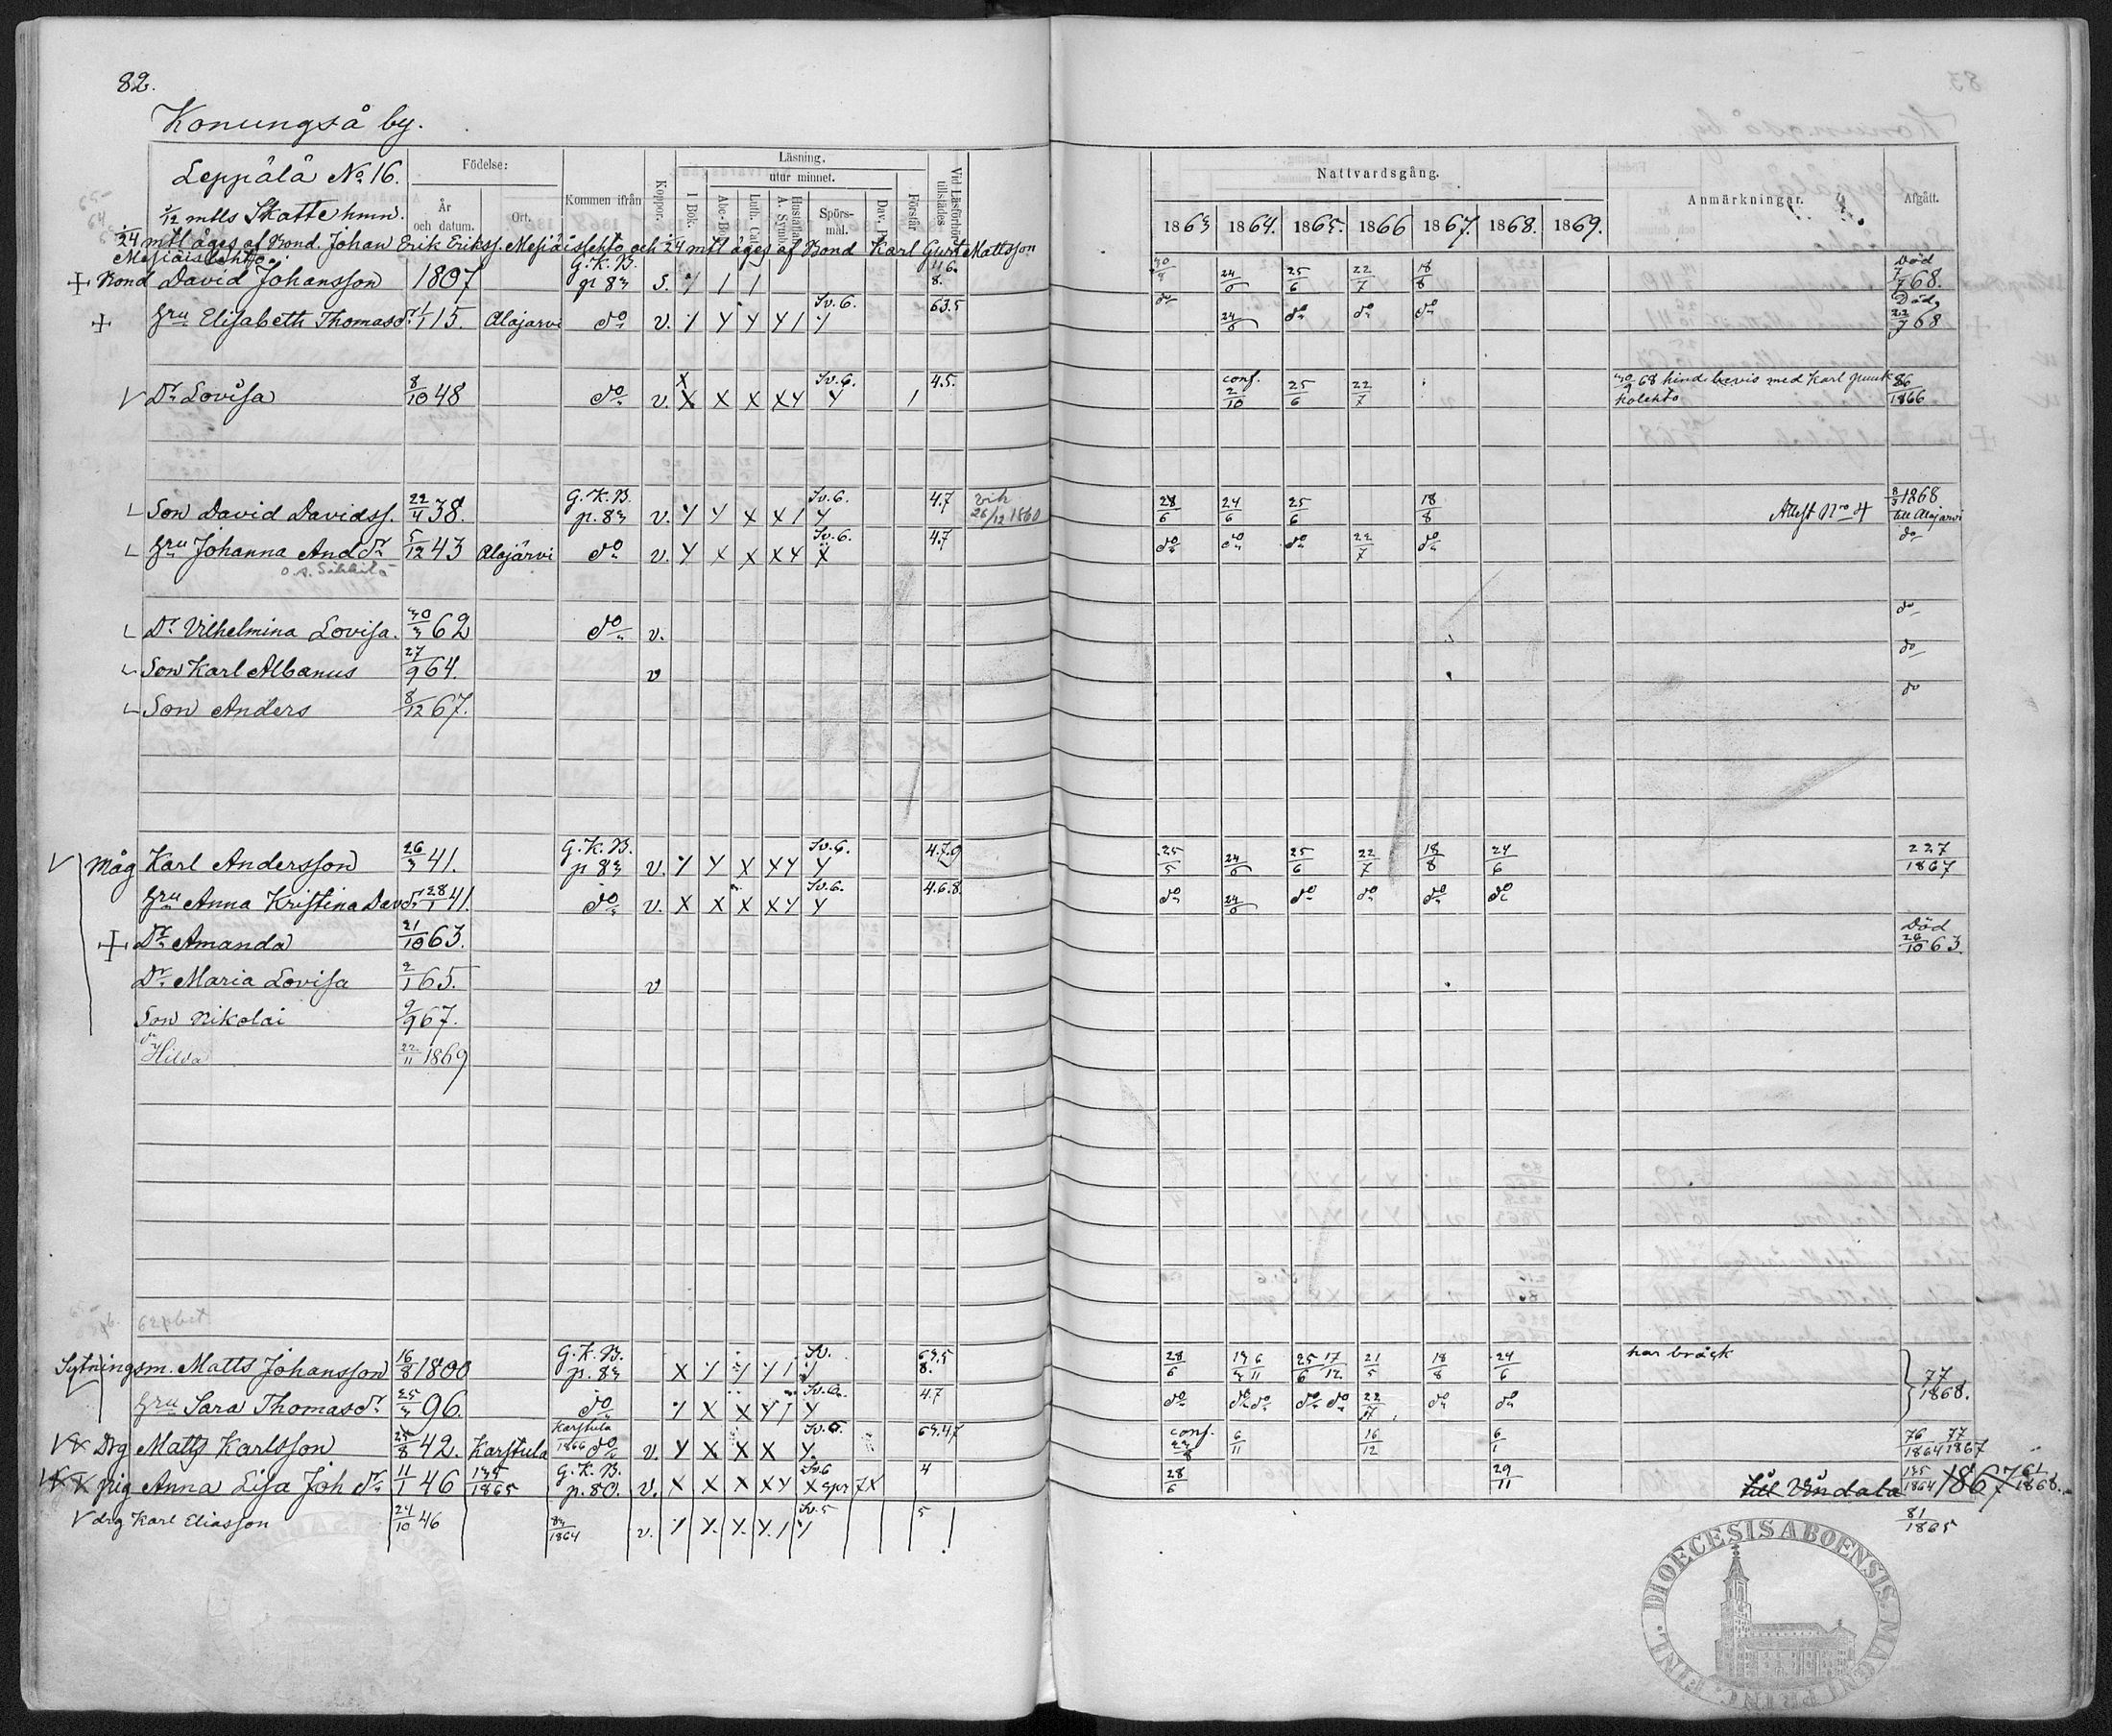 82.
Konungså by.
Leppälä No 16.
5/12 mtls Skatte hmn.
Födelse:
År och datum.
Ort.
Kommen ifrån
Koppor.
Läsning.
utur minnet.
I Bok.
Abc-Bok
Luth. Cat.
Hustaflan A. Symb.
Spörs-mål.
Dav. Ps.
Förstår
Vid Läsförhör tillstädes
Nattvardsgång.
1863 1864. 1865. 1866 1867. 1868. 1869.
Anmärkningar.
Afgått.
/24 mtl äges af Bond. Johan Erik Erikss. Mesiäislehto och /24 mtl äges af Bond Karl Gust Mattsson
Mesiäislehto.
+ Bond David Johansson 1807 G.K.B. p 83 S. 116. 8. 30/8 24/6 25/6 22/7 18/8 Död 7/7 68.
+ Hru Elisabeth Thomasdr 1/1 15. Alajarvi do v. Sv. 6. 63.5 do 24/6 do do do Död 22/7 68
V Dr Lovisa 8/10 48 do v. X X X X X Y Y 1 Sv. 6. 4.5. conf. 2/10 25/6 22/7 30/9 68 hinds bevis med Karl 86/1866
Son David Davidss. 22/4 38. G.K.B. p. 83 v. Y Y X X 1 Y Sv. 6. 4.7 vih 26/12 1860 28/6 24/6 25/6 18/8 Attest Nro 4 8/3 1868 till Alajarvi
Hru Johanna And dr 5/12 43 Alajärvi do v. Y X X X Y X Sv. 6. 4.7 do do do 22/7 do do
o.s. Sikkilä
Dr Vilhelmina Lovisa. 30/3 62 do v. do
Son Karl Albanus 27/9 64. v do
Son Anders 8/12 67. do
V Måg Karl Andersson 26/3 41. G.K.B. p 83 v. Y Y X X Y Y Sv. 6. 4.7.9 25/5 24/6 25/6 22/7 18/8 24/6 227/1867
Hru Anna Kristina Davdr 28/1 41. do v. X X X X Y Y Sv. 6. 4.6.8. do 24/6 do do do do
+ Dr Amanda 21/10 63. Död 26/10 63.
Dr Maria Lovisa 2/1 65. v
Son Nikolai 9/9 67.
dr Hilda 22/11 1869
Sytningsm. Matts Johansson 16/8 1800 G.K.B. p. 83 Sv. 63.5 8. 28/6 13/3 6/11 25/6 17/12 21/5 18/8 24/6 har bråck
Hru Sara Thomasdr 25/3 96. do Y X X Y 1 Y Sv. 6. 4.7 do do do do do 22/7 do do 77/1868.
Drg Matts Karlsson 25/8 42. Karstula Karstula 1866 do v. Y X X X Y Sv. 6. 63.4.7 conf. 6/11 16/12 6/1 76/1864 77/1867
pig Anna Lisa Joh dr 11/1 46 135/1865 G.K.B. p. 80. v. X X X X Y X Sv. 6 4 28/6 29/11 till Vindala 135/1864 1867 61/1868.
V drg Karl Eliasson 24/10 46 83/1864 v. Sv. 5 5 81/1865
DIOECESIS ABOENSIS MAGNI PRINC. FINL.